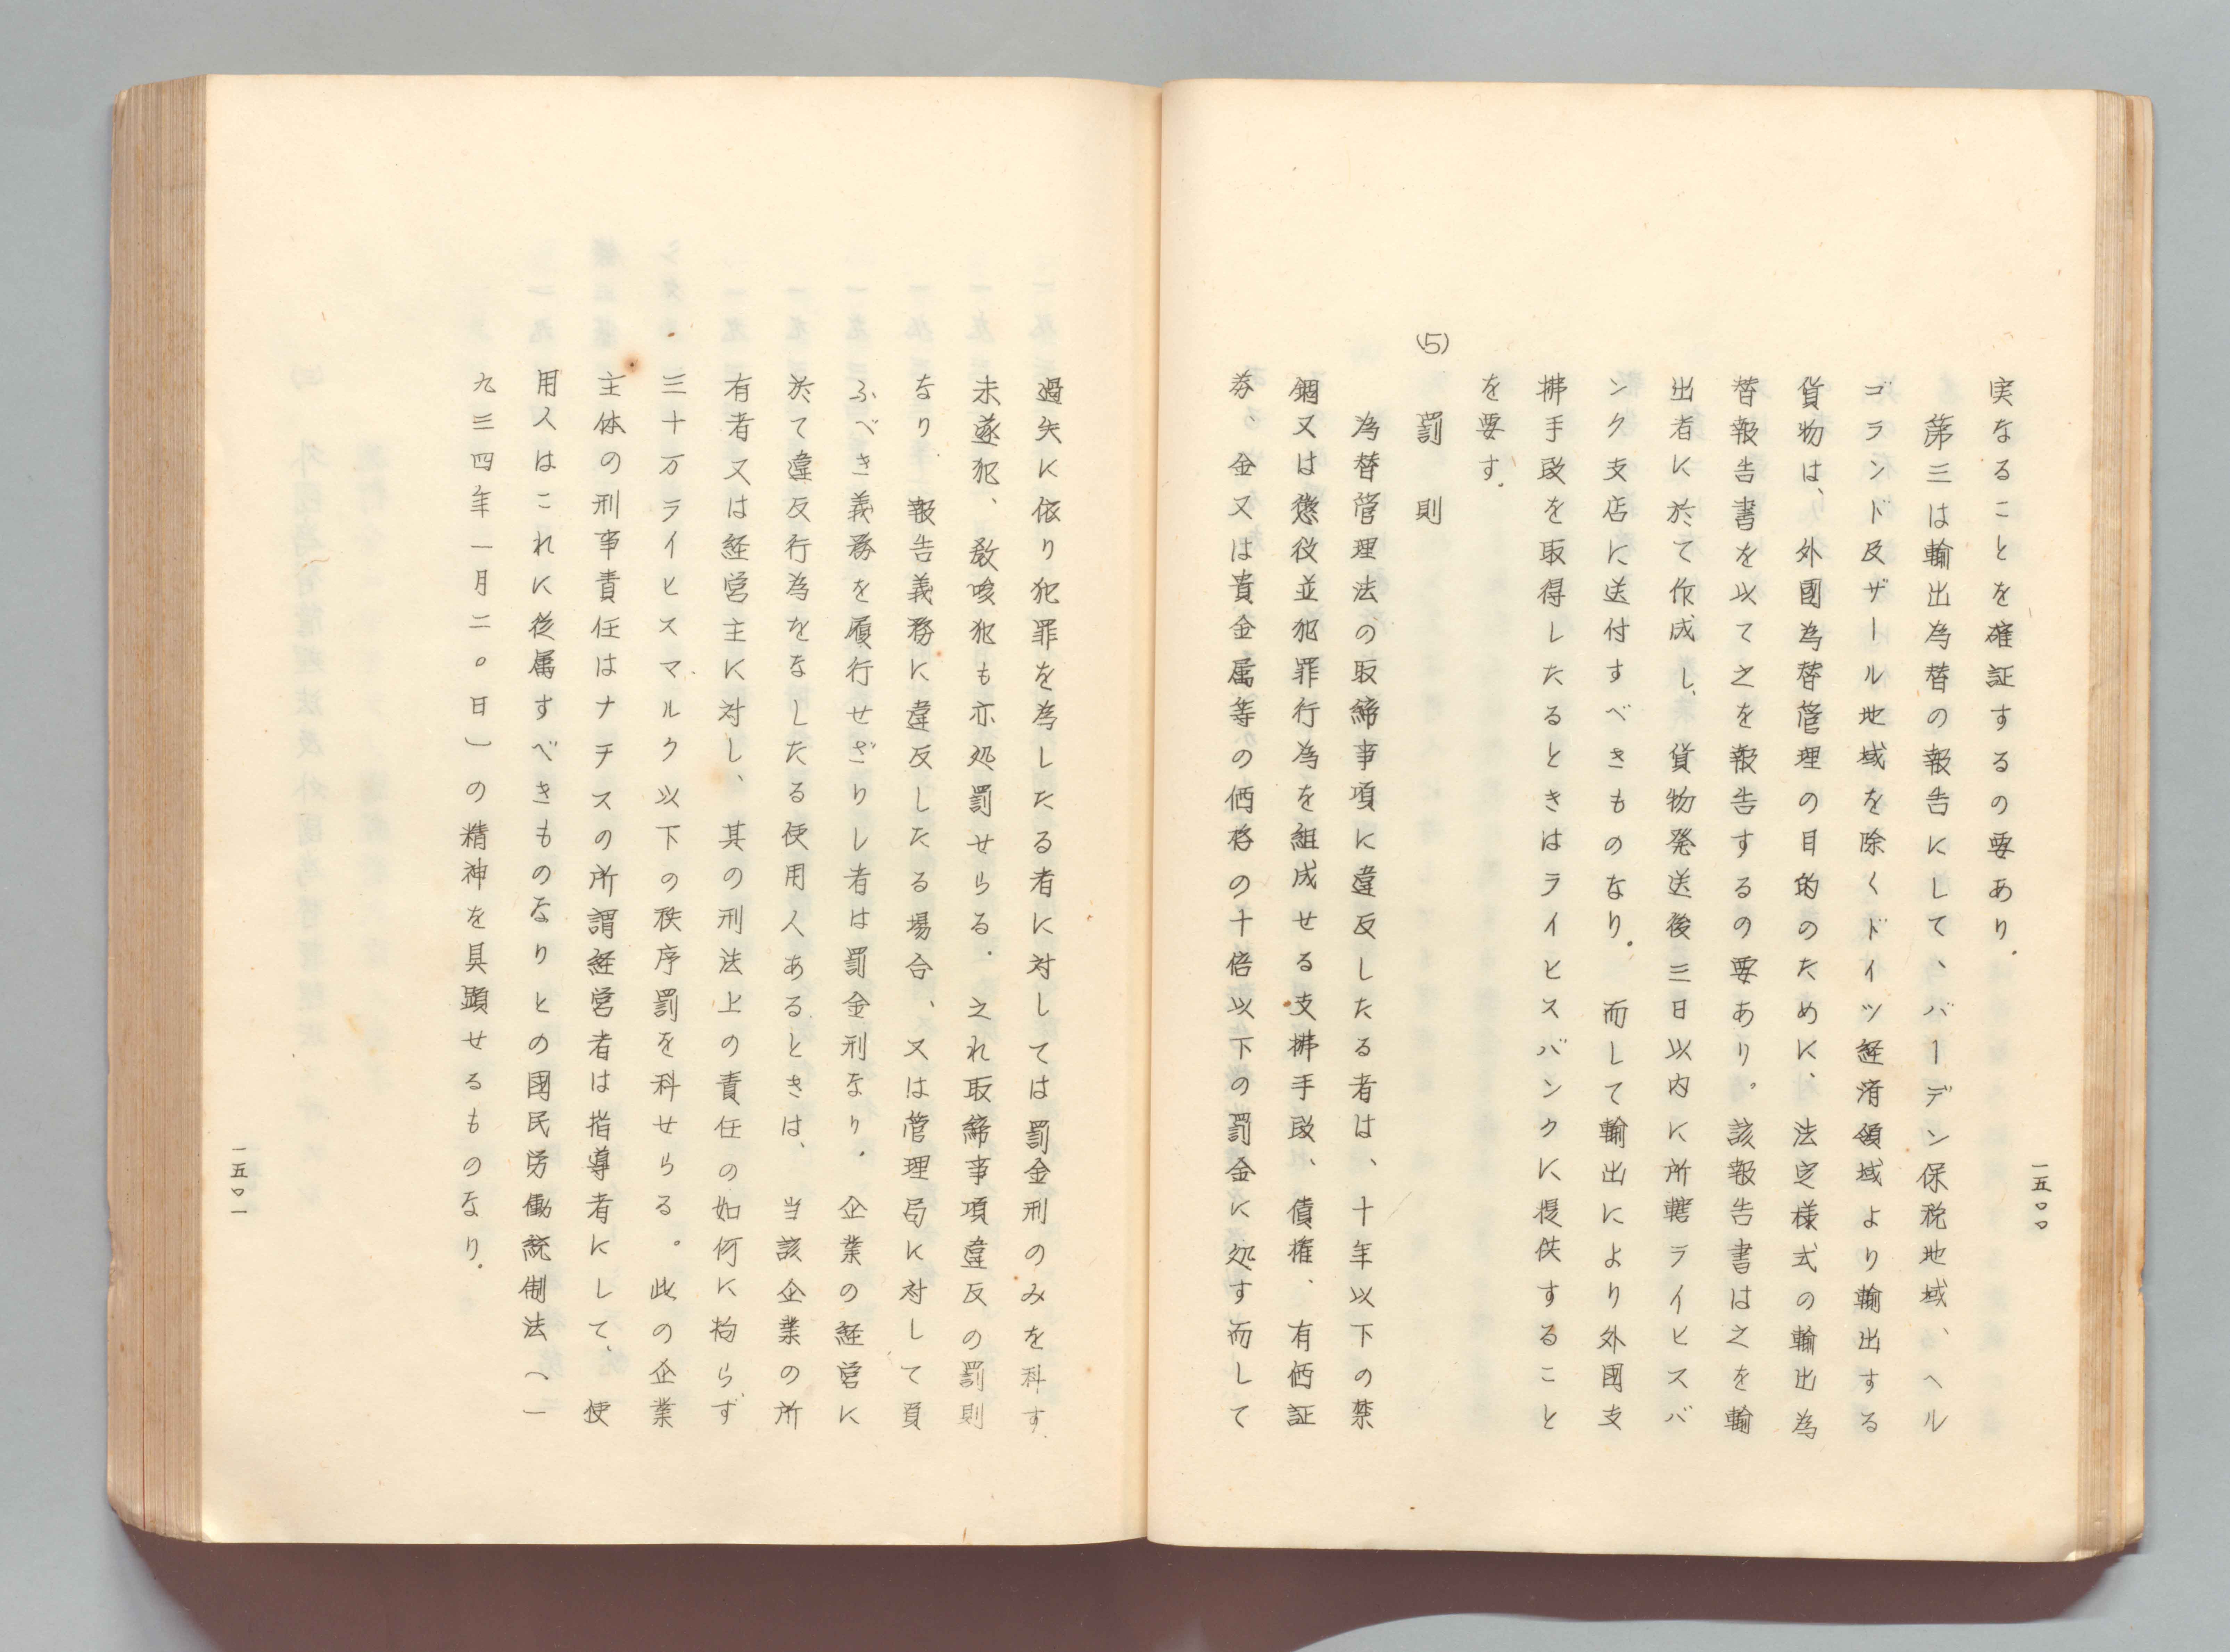 一五〇〇
実なることを確証するの要あり。
第三は輸出為替の報告にして、バーデン保税地域、ヘル
ゴランド及ザール地域を除くドイツ経済領域より輸出する
貨物は、外國為替管理の目的のために、法定様式の輸出為
替報告書を以て之を報告するの要あり。該報告書は之を輸
出者に於て作成し、貨物発送後三日以内に所轄ライヒスバ
ンク支店に送付すべきものなり。而して輸出により外國支
拂手段を取得したるときはライヒスバンクに提供すること
を要す。
(5) 罰則
為替管理法の取締事項に違反したる者は、十年以下の禁
錮又は懲役並犯罪行為を組成せる支拂手段、債権、有価証
券、金又は貴金属等の価格の十倍以下の罰金に処す而して
過失に依り犯罪を為したる者に対しては罰金刑のみを科す
未遂犯、教唆犯も亦処罰せらる。之れ取締事項違反の罰則
なり。報告義務に違反したる場合、又は管理局に対して負
ふべき義務を履行せざりし者は罰金刑なり。企業の経営に
於て違反行為をなしたる使用人あるときは、当該企業の所
有者又は経営主に対し、其の刑法上の責任の如何に拘らず
三十万ライヒスマルク以下の秩序罰を科せらる。此の企業
主体の刑事責任はナチスの所謂経営者は指導者にして、使
用人はこれに従属すべきものなりとの國民労働統制法（一
九三四年一月二〇日）の精神を具顕せるものなり。
一五〇一